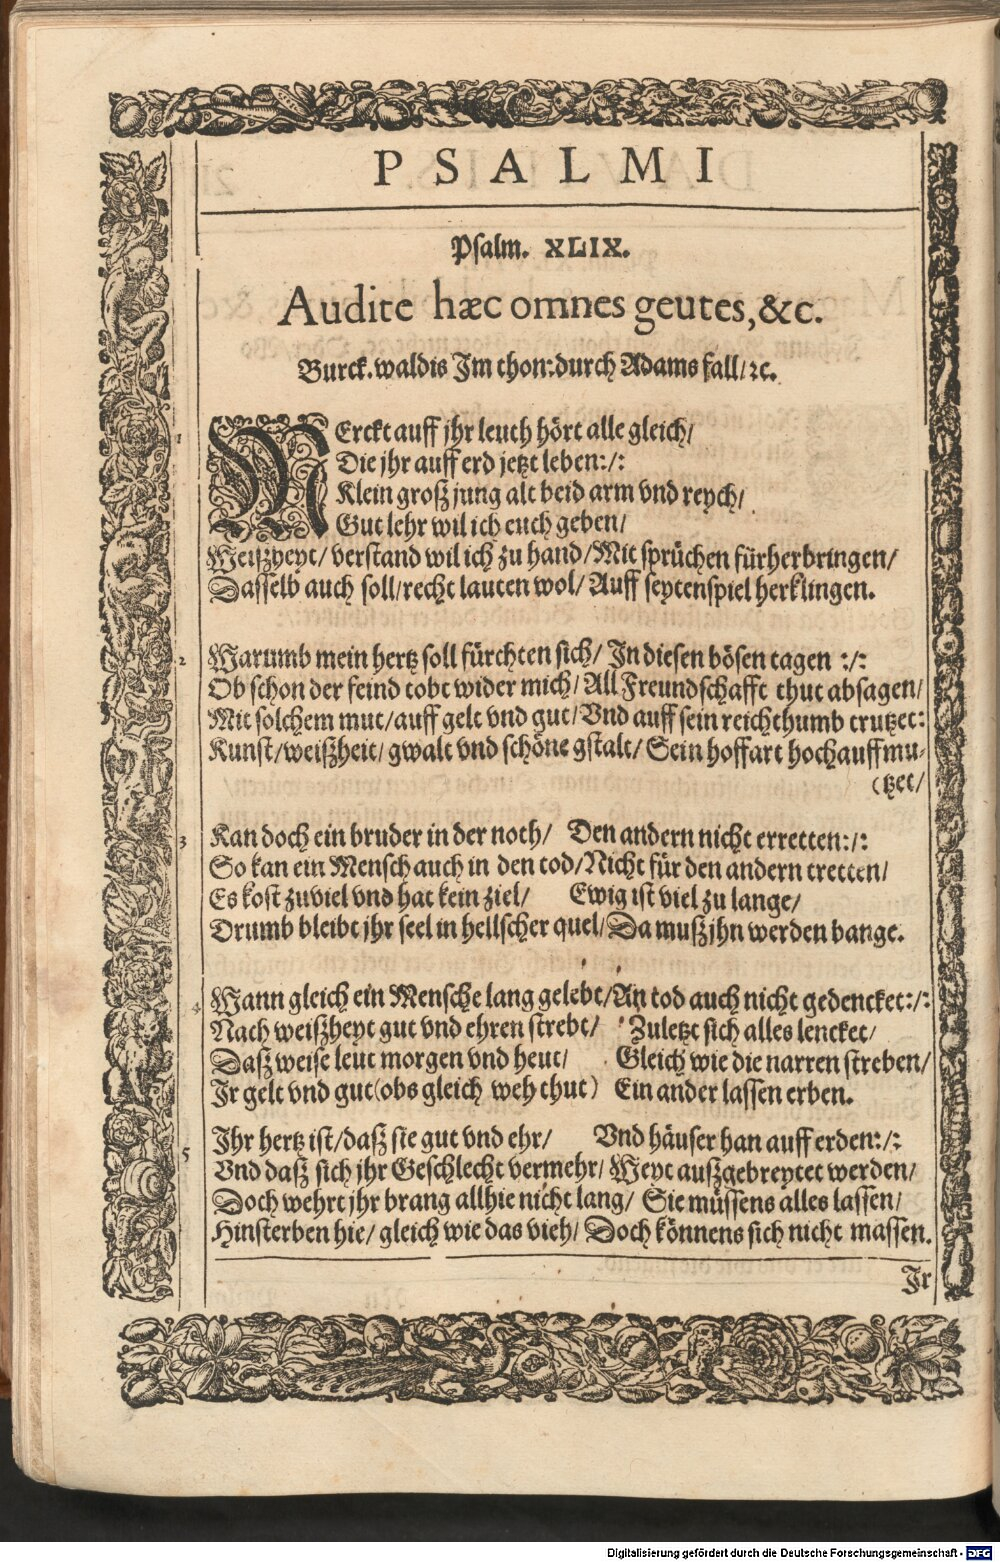 PSALMI
Psalm. XLIX.
Audite hæc omnes geutes, &c.
Burck. waldis Im thon: durch Adams fall/ ꝛc.
1 MErckt auff jhr leuth hört alle gleich/
Die jhr auff erd jetzt leben:/:
Klein groß jung alt beid arm vnd reych/
Gut lehr wil ich euch geben/
Weißheyt/ verstand wil ich zu hand/ Mit sprüchen fürherbringen/
Dasselb auch soll/ recht lauten wol/ Auff seytenspiel herklingen.
2 Warumb mein hertz soll fürchten sich/ In diesen bösen tagen :/:
Ob schon der feind tobt wider mich/ All Freundschafft thut absagen/
Mit solchem mut/ auff gelt vnd gut/ Vnd auff sein reichthumb trutzet:
Kunst/ weißheit/ gwalt vnd schöne gstalt/ Sein hoffart hochauffmu-
(tzet/
3 Kan doch ein bruder in der noth/ Den andern nicht erretten:/:
So kan ein Mensch auch in den tod/ Nicht für den andern tretten/
Es kost zuviel vnd hat kein ziel/ Ewig ist viel zu lange/
Drumb bleibt jhr seel in hellscher quel/ Da muß jhn werden bange.
4 Wann gleich ein Mensche lang gelebt/ An tod auch nicht gedencket:/:
Nach weißheyt gut vnd ehren strebt/ Zuletzt sich alles lencket/
Daß weise leut morgen vnd heut/ Gleich wie die narren streben/
Ir gelt vnd gut (obs gleich weh thut) Ein ander lassen erben.
5 Ihr hertz ist/ daß sie gut vnd ehr/ Vnd häuser han auff erden:/:
Vnd daß sich jhr Geschlecht vermehr/ Weyt außgebreytet werden/
Doch wehrt jhr brang allhie nicht lang/ Sie müssens alles lassen/
Hinsterben hie/ gleich wie das vieh/ Doch können sich nicht massen.
Ir
Digitalisierung gefördert durch die Deutsche Forschungsgemeinschaft - DFG